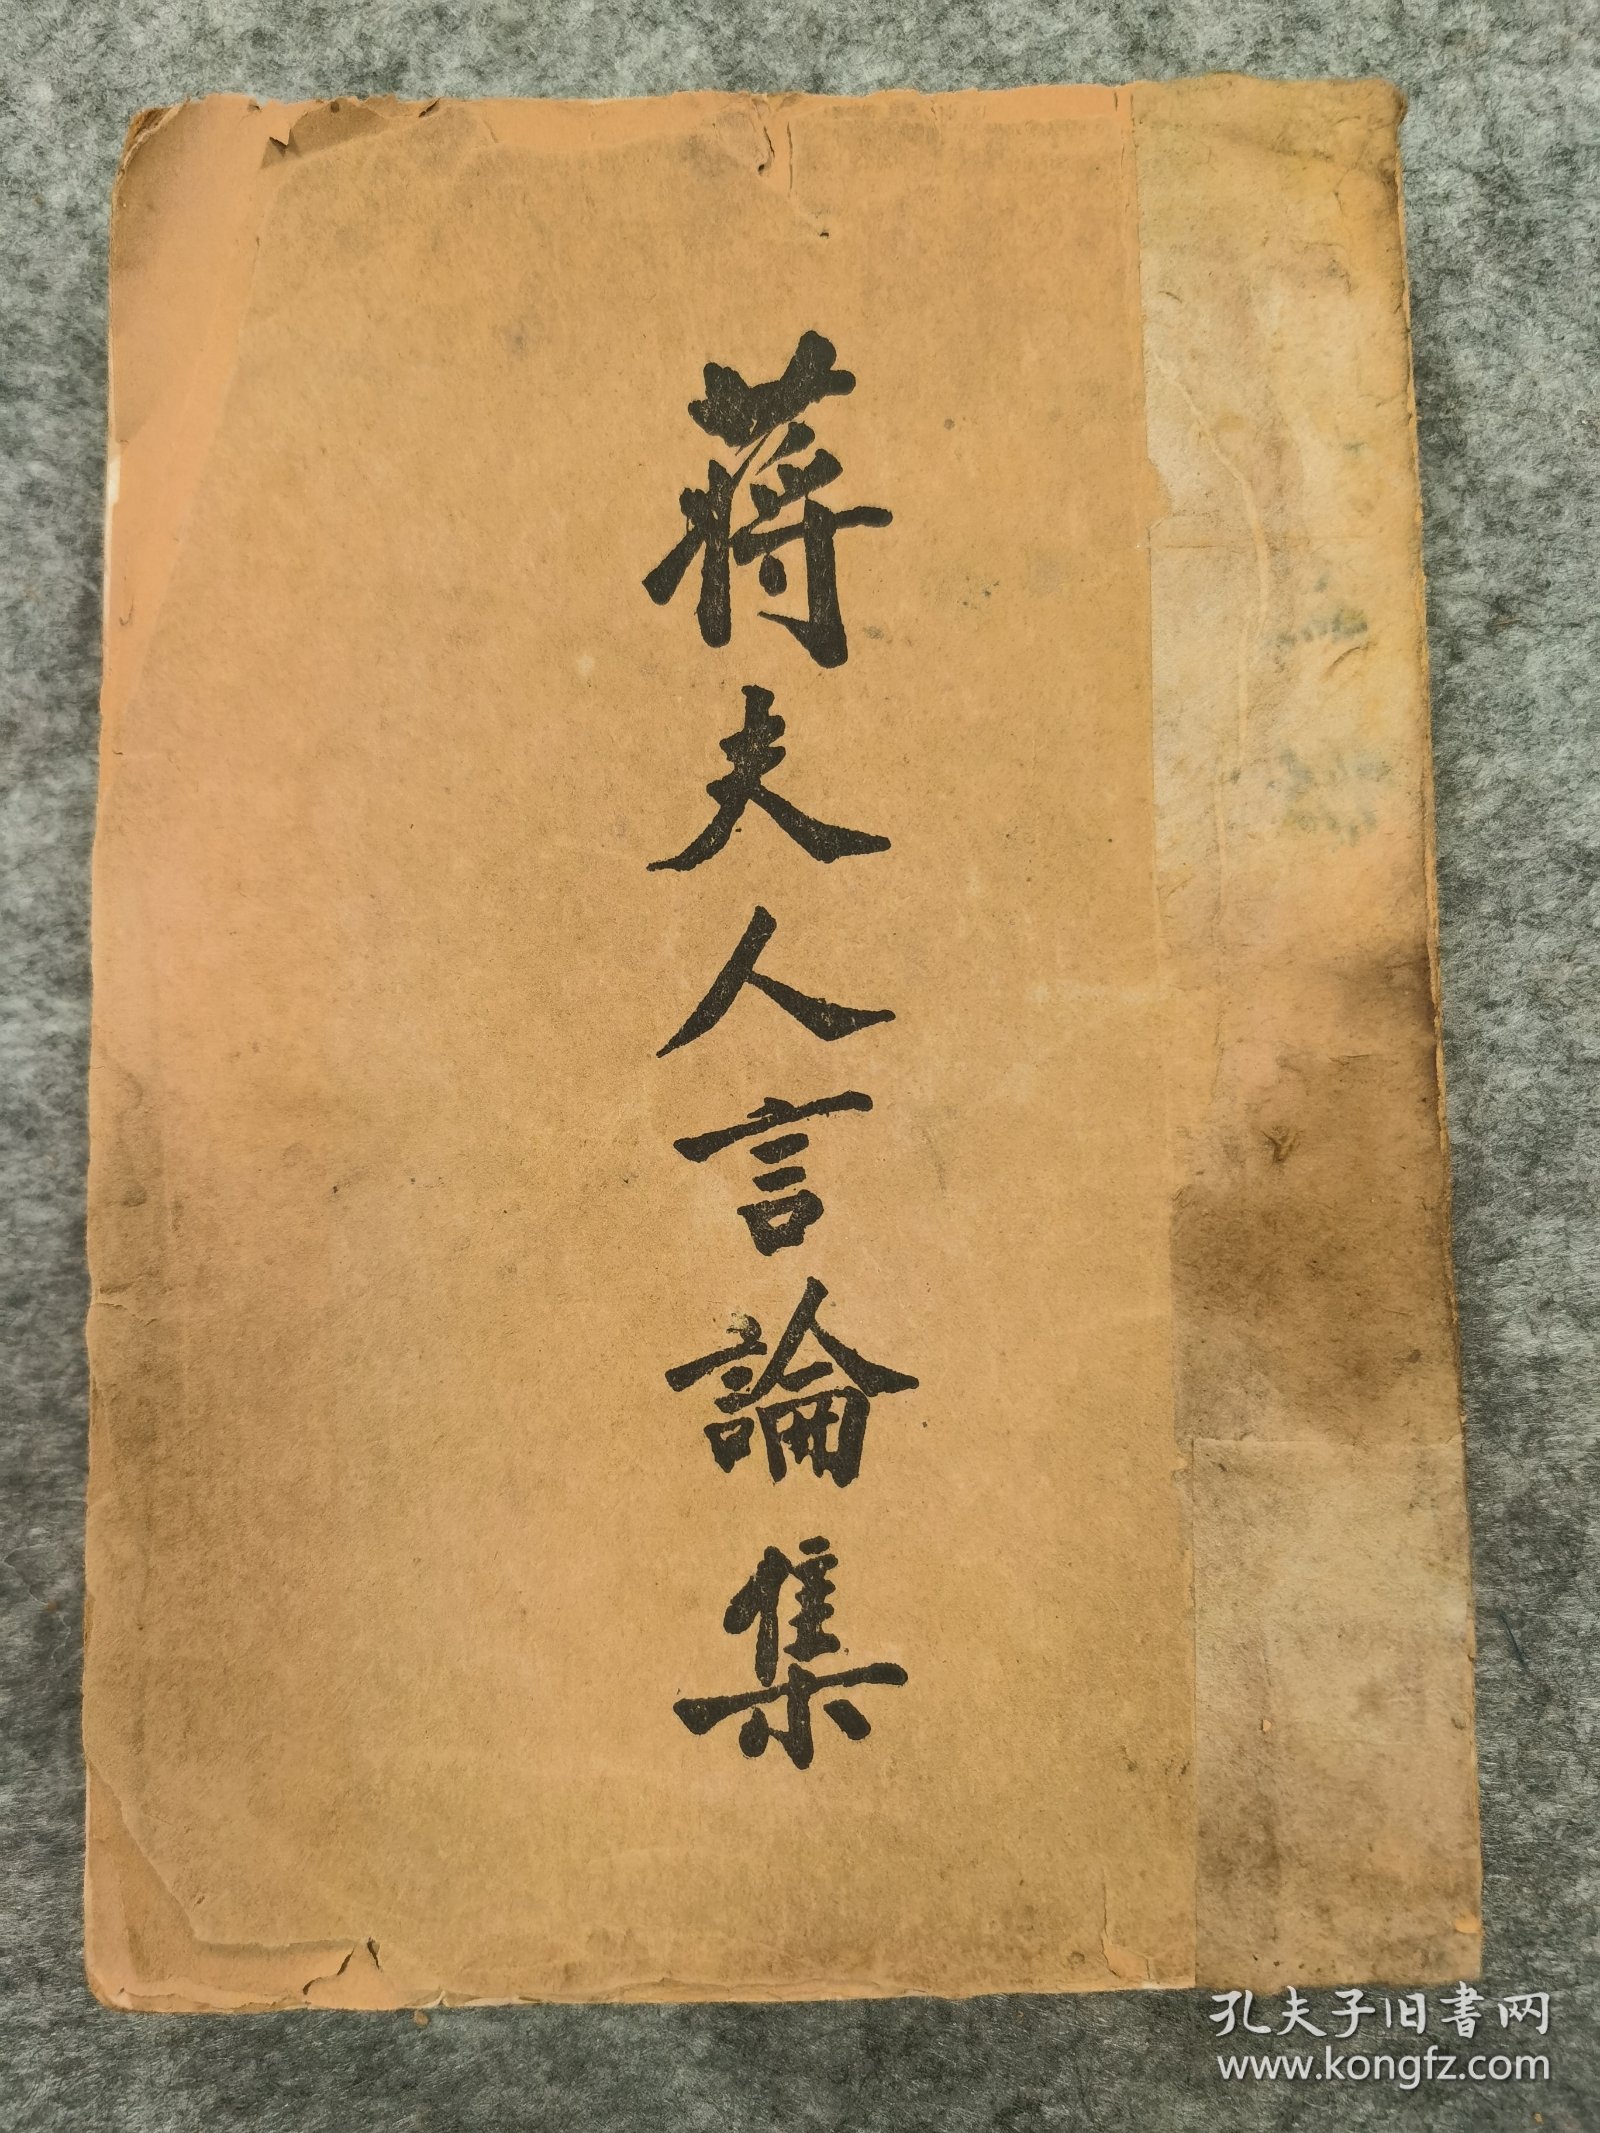 蔣夫人言論集
孔夫子旧書网
www.kongfz.com